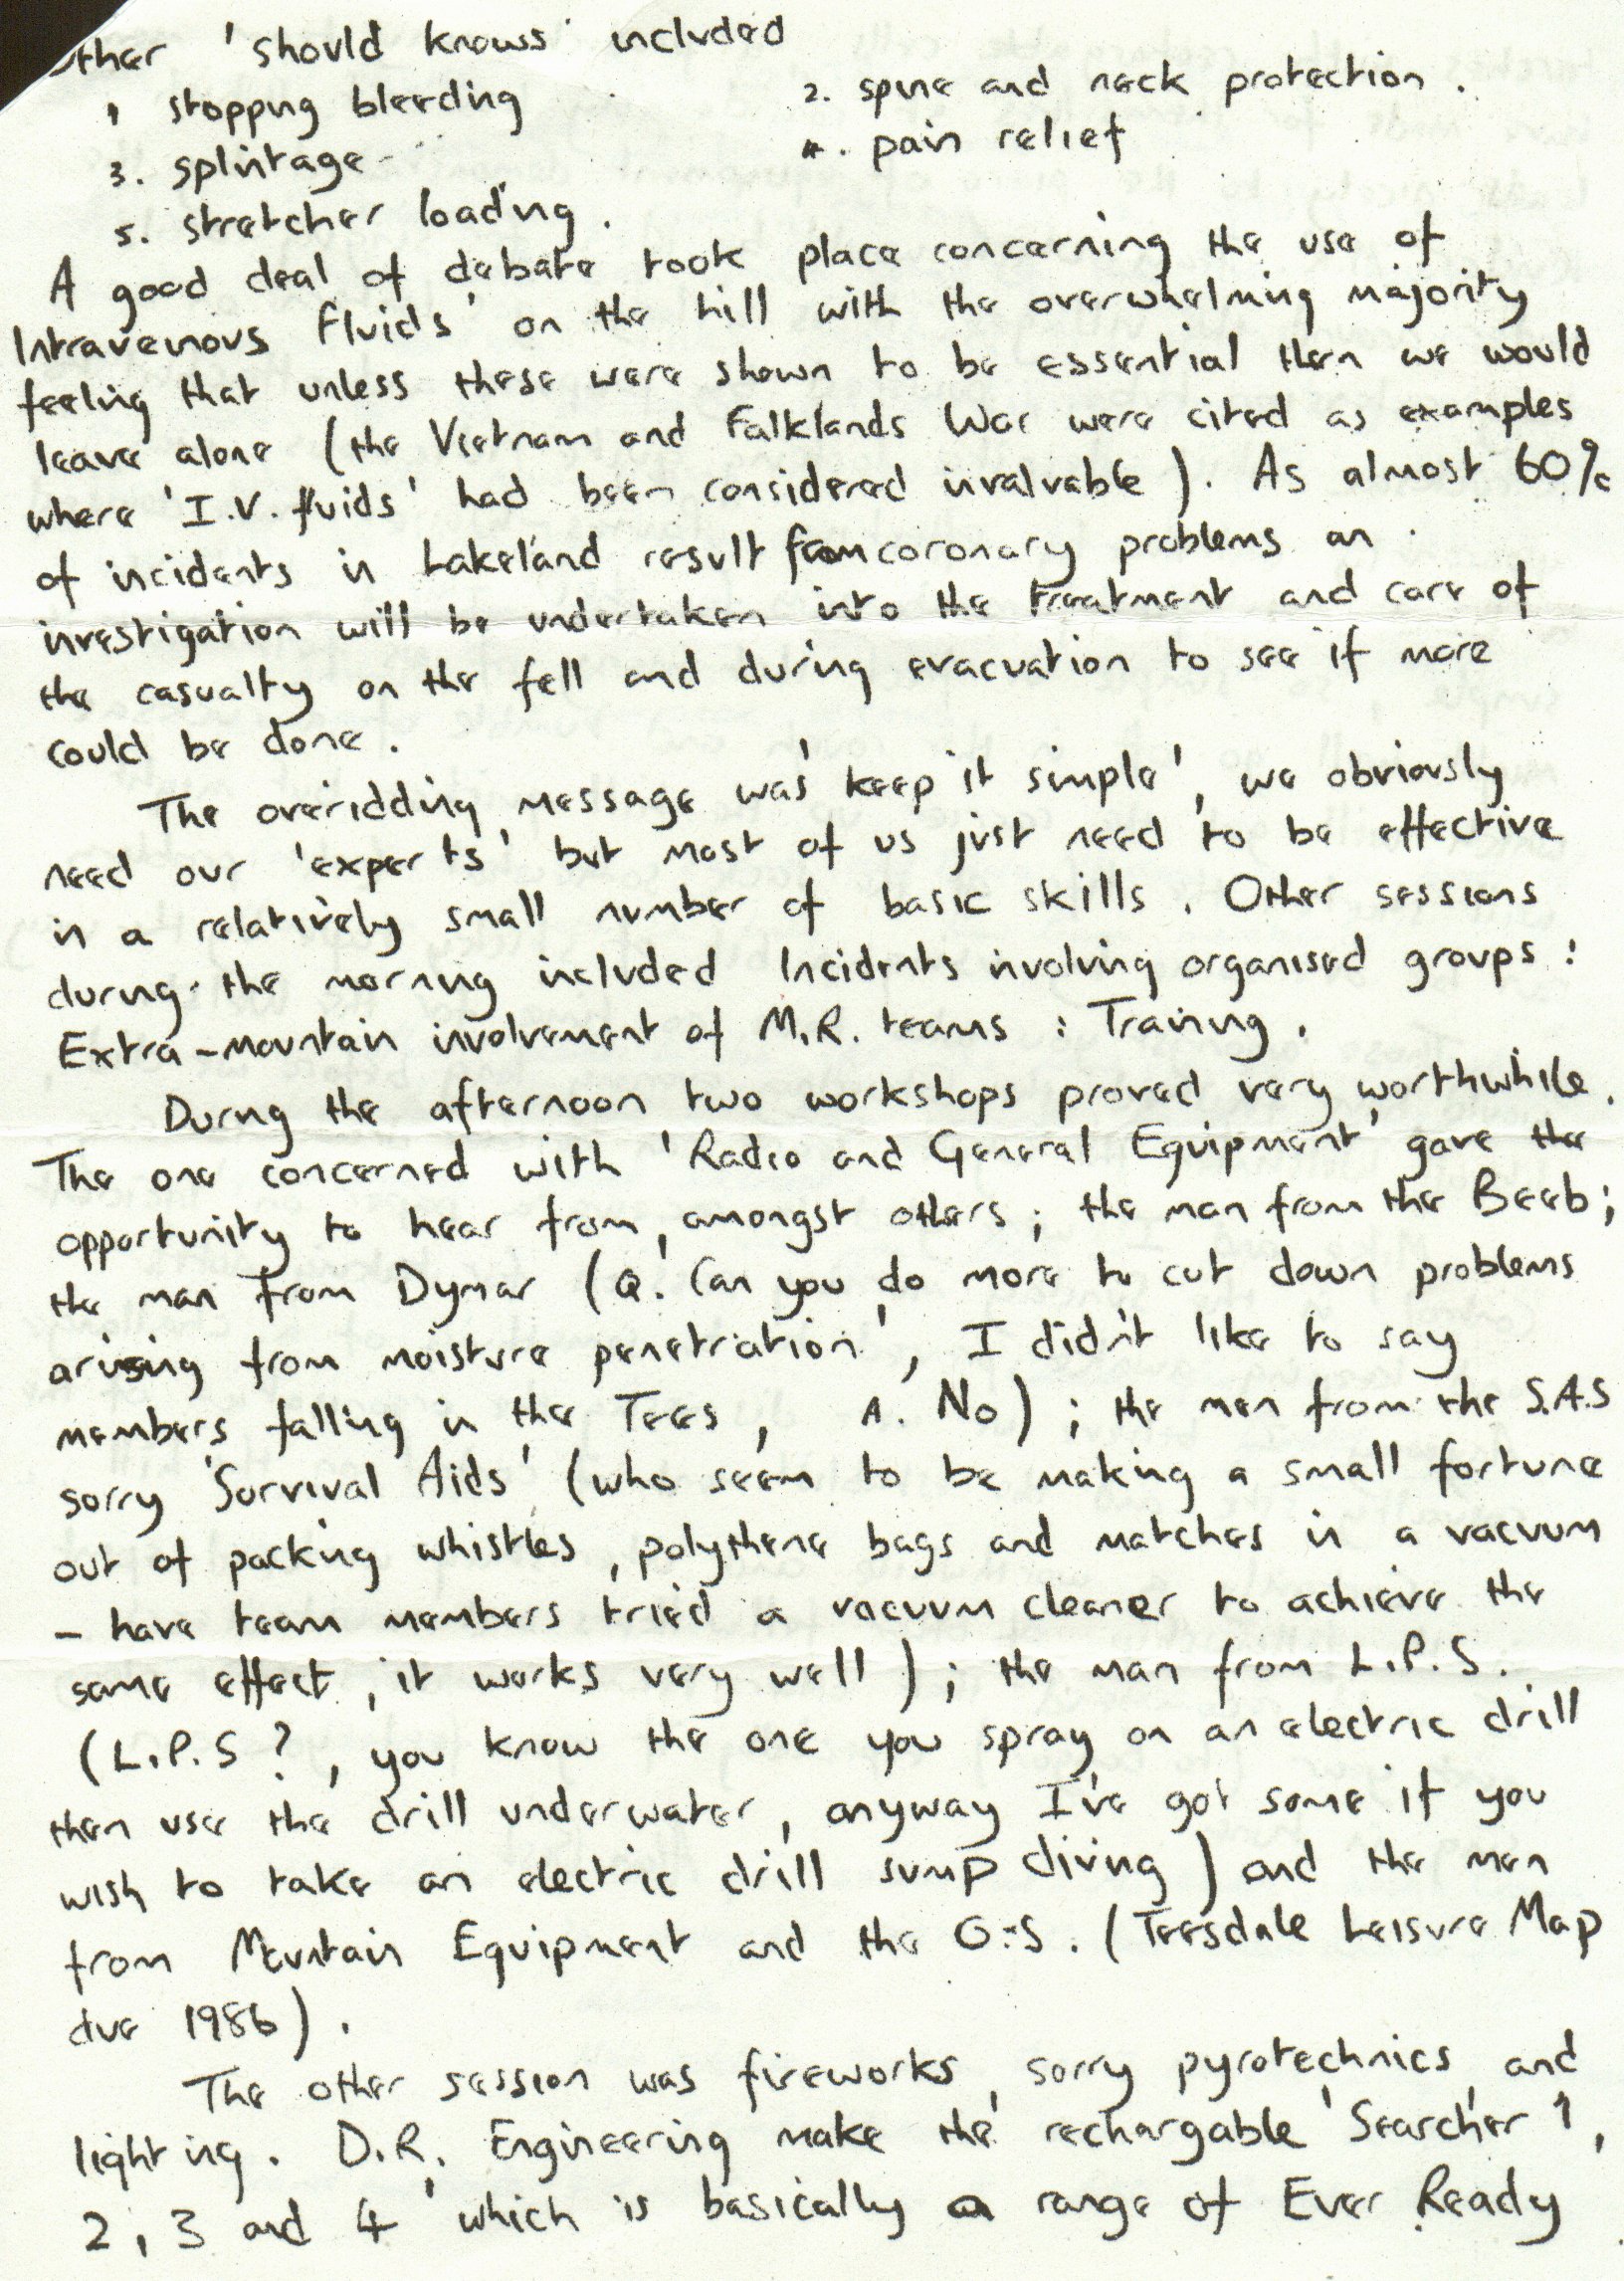 Other 'should knows' included
1 stopping bleeding 2. spine and neck protection.
3. splintage 4. pain relief
5. stretcher loading.
A good deal of debate took place concerning the use of
Intravenous fluids' on the hill with the overwhelming majority
feeling that unless these were shown to be essential then we would
leave alone (the Vietnam and Falklands War were cited as examples
where 'I.V. fluids' had been considered invaluable). As almost 60%
of incidents in Lakeland result from coronary problems an
investigation will be undertaken into the treatment and care of
the casualty on the fell and during evacuation to see if more
could be done.
The overidding message was 'keep it simple', we obviously
need our 'experts' but most of us just need to be effective
in a relatively small number of basic skills. Other sessions
during the morning included Incidents involving organised groups:
Extra-mountain involvement of M.R. teams: Training.
During the afternoon two workshops proved very worthwhile.
The one concerned with 'Radio and General Equipment' gave the
opportunity to hear from, amongst others; the man from the Beeb;
the man from Dymar (Q.'Can you do more to cut down problems
arising from moisture penetration', I didn't like to say
members falling in the Tees, A. No); the men from the S.A.S
sorry 'Survival Aids' (who seem to be making a small fortune
out of packing whistles, polythene bags and matches in a vacuum
- have team members tried a vacuum cleaner to achieve the
same effect, it works very well); the man from L.P.S.
(L.P.S?, you know the one you spray on an electric drill
then use the drill underwater, anyway I've got some if you
wish to take an electric drill sump diving) and the men
from Mountain Equipment and the O.S. (Teesdale Leisure Map
due 1986).
The other session was fireworks, sorry pyrotechnics, and
lighting. D.R. Engineering make the rechargable 'Searcher 1,
2, 3 and 4' which is basically a range of Ever Ready